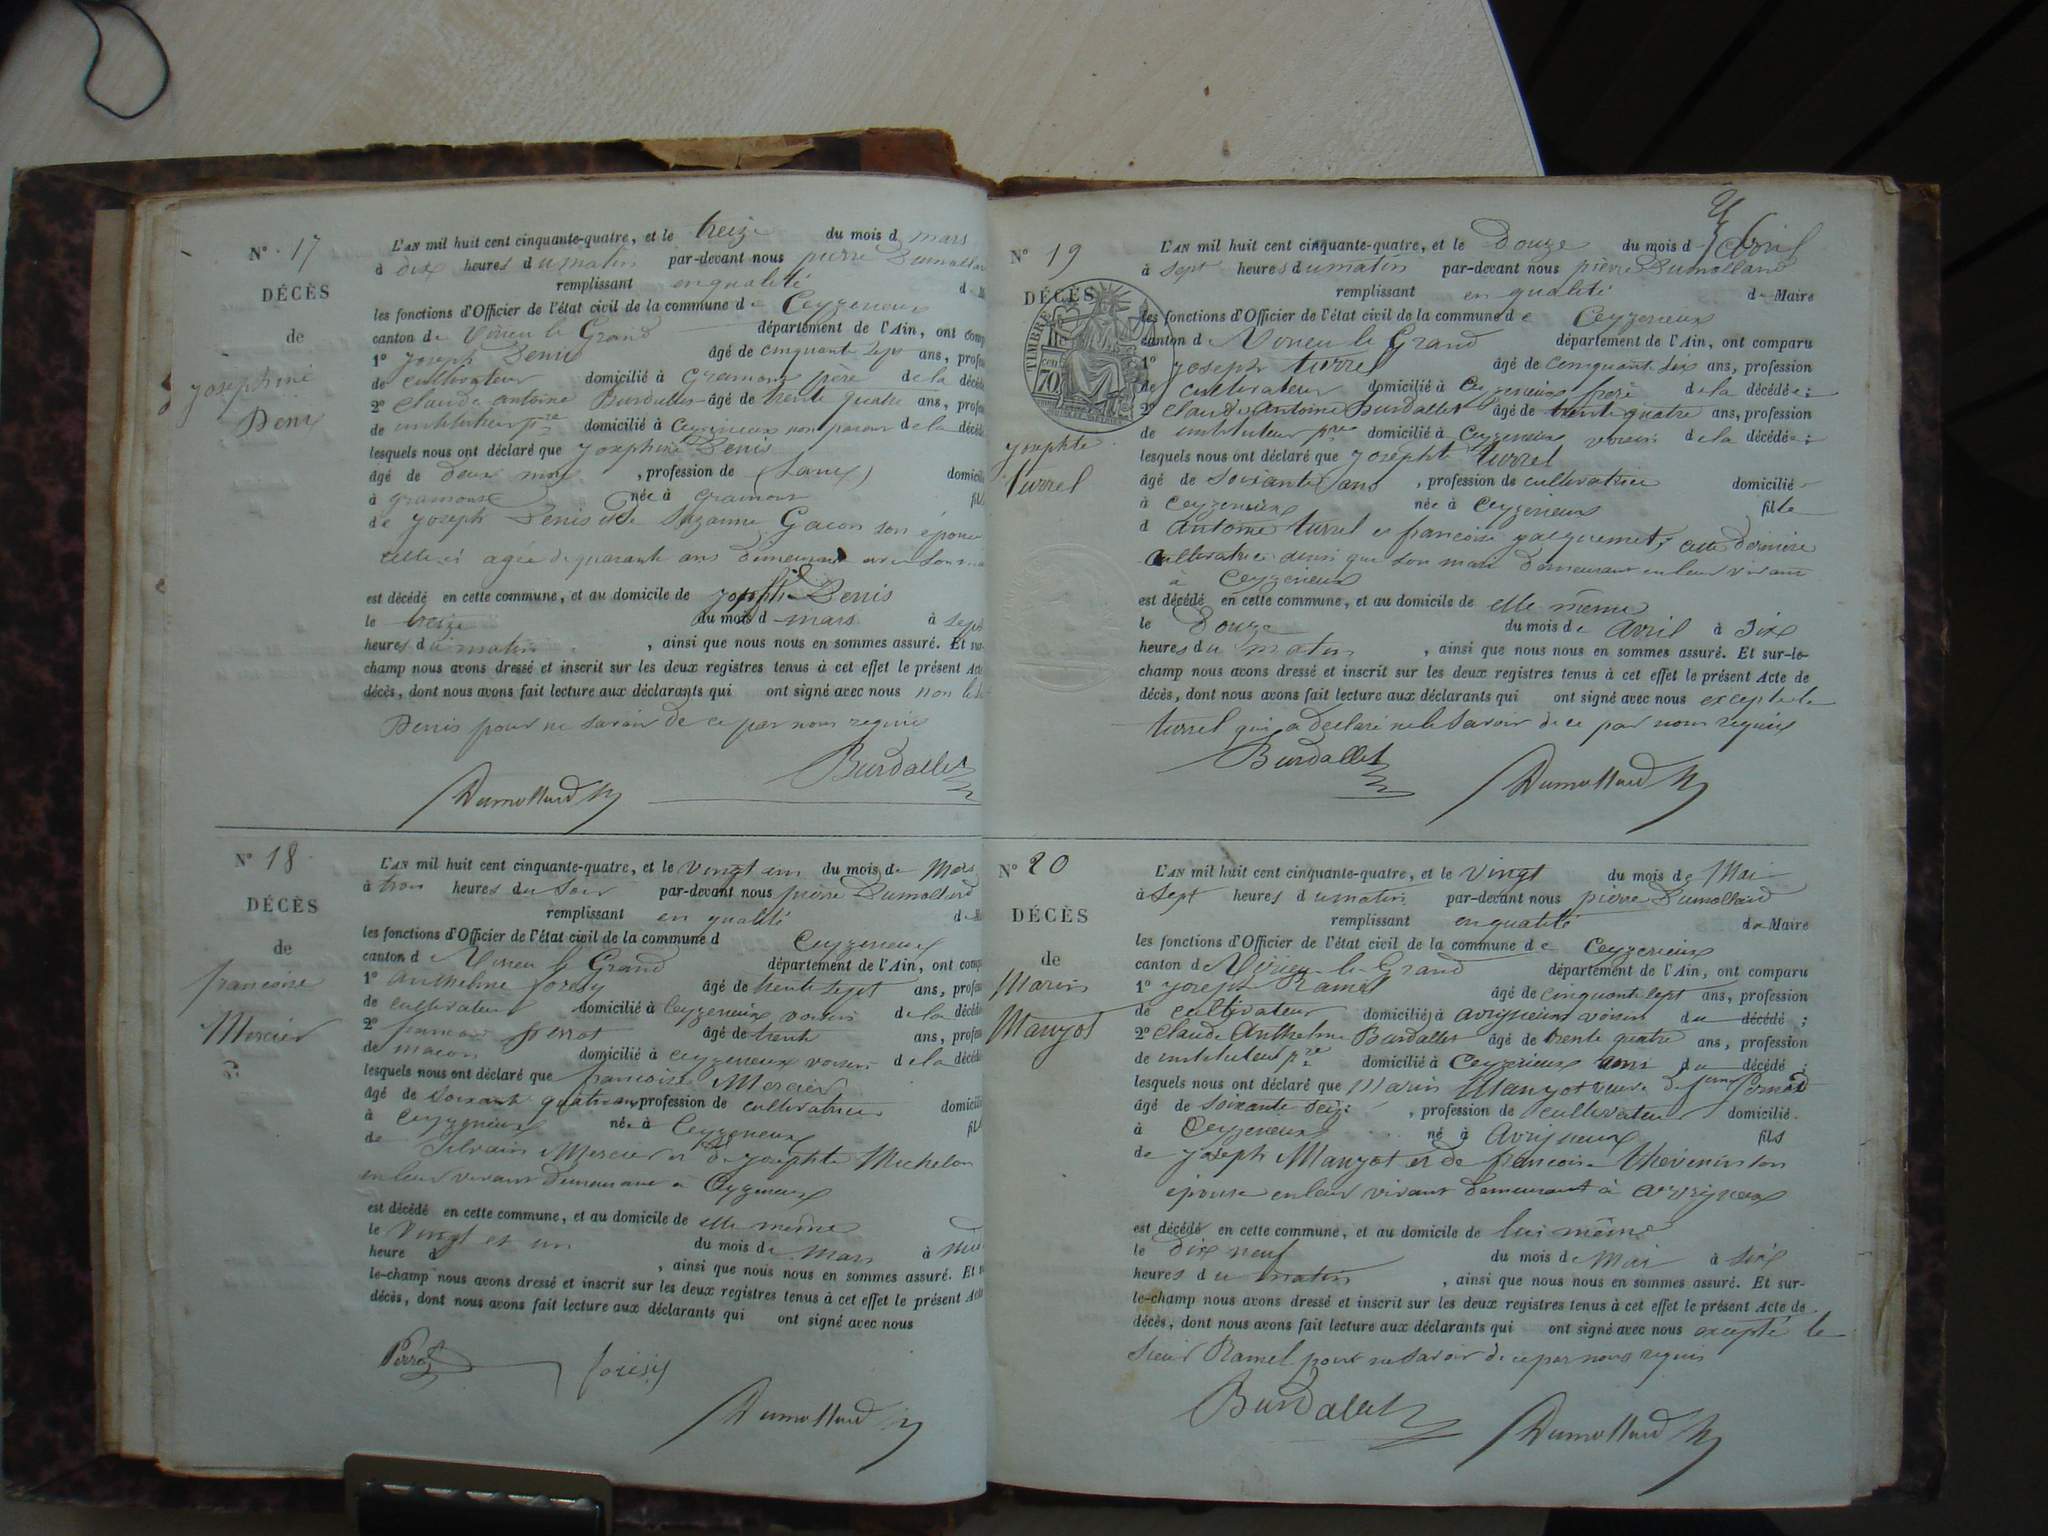 N° 17
DÉCÈS
de
Josephine
Denis
L'AN mil huit cent cinquante-quatre, et le treize du mois d mars
à dix heures du matin par-devant nous pierre Dumollard
remplissant en qualité d
les fonctions d'Officier de l'état civil de la commune de Ceyzerieux
canton de Virieu le Grand département de l'Ain, ont comp
1° Joseph Denis âgé de cinquante sept ans, profes
de cultivateur domicilié à Gramont père de la décédé
2° Claude antoine Burdallet âgé de trente quatre ans, profes
de instituteur pre domicilié à Ceyzerieux non parent de la décédé
lesquels nous ont déclaré que Josephine Denis
âgé de deux mois , profession de (sans) domicili
à gramont née à Gramont fil
de Joseph Denis et de Suzanne Gacon son épouse
celle ci agée de quarante ans demeurant avec son ma
est décédé en cette commune, et au domicile de Joseph Denis
le treize du mois d mars à sept
heures du matin , ainsi que nous nous en sommes assuré. Et sur-
champ nous avons dressé et inscrit sur les deux registres tenus à cet effet le présent Acte
décès, dont nous avons fait lecture aux déclarants qui ont signé avec nous non le
Denis pour ne savoir de ce par nous requis
Burdallet
Dumollard
N° 18
DÉCÈS
de
francoise
Mercier
L'AN mil huit cent cinquante-quatre, et le vingt un du mois de Mars
à trois heures du soir par-devant nous pierre Dumollard
remplissant en qualité d
les fonctions d'Officier de l'état civil de la commune d Ceyzerieux
canton de Virieu le Grand département de l'Ain, ont comp
1° anthelme forésy âgé de trente sept ans, profes
de cultivateur domicilié à Ceyzerieux voisin de la décédé
2° francois perrot âgé de trente ans, profes
de macon domicilié à ceyzerieux voisin de la décédé
lesquels nous ont déclaré que francoise Mercier
âgé de soixante quatre ans profession de cultivatrice domicili
à Ceyzerieux née à Ceyzerieux fil
de Silvain Mercier et de Josephte Michelon
en leur vivant demeurant à Ceyzerieux
est décédé en cette commune, et au domicile de elle même
le vingt et un du mois de mars à
heure d , ainsi que nous nous en sommes assuré. Et
le-champ nous avons dressé et inscrit sur les deux registres tenus à cet effet le présent Acte
décès, dont nous avons fait lecture aux déclarants qui ont signé avec nous
Perrot forésy
Dumollard
N° 19
DÉCÈS
TIMBRE
70
Josephte
Turrel
L'AN mil huit cent cinquante-quatre, et le Douze du mois d'Avril
à sept heures du matin par-devant nous pierre Dumollard
remplissant en qualité de Maire
les fonctions d'Officier de l'état civil de la commune de Ceyzerieux
canton de Virieu le Grand département de l'Ain, ont comparu
1° Joseph turrel âgé de cinquante six ans, profession
de cultivateur domicilié à Ceyzerieux frère de la décédée;
2° Claude Antoine Burdallet âgé de trente quatre ans, profession
de instituteur pre domicilié à Ceyzerieux voisin de la décédée;
lesquels nous ont déclaré que Josephte turrel
âgé de soixante ans , profession de cultivatrice domicilié
à ceyzerieux née à Ceyzerieux fille
d antoine turrel et francoise jacquemet; cette dernière
cultivatrice ainsi que son mari demeurant en leur vivant
à Ceyzerieux
est décédé en cette commune, et au domicile de elle même
le Douze du mois de avril à six
heures du matin , ainsi que nous nous en sommes assuré. Et sur-le-
champ nous avons dressé et inscrit sur les deux registres tenus à cet effet le présent Acte de
décès, dont nous avons fait lecture aux déclarants qui ont signé avec nous excepté le
turrel qui a déclaré ne le savoir de ce par nous requis
Burdallet
Dumollard
N° 20
DÉCÈS
de
Marin
Manyot
L'AN mil huit cent cinquante-quatre, et le vingt du mois de Mai
à sept heures du matin par-devant nous pierre Dumollard
remplissant en qualité de Maire
les fonctions d'Officier de l'état civil de la commune de Ceyzerieux
canton de Virieu-le-Grand département de l'Ain, ont comparu
1° Joseph Ramel âgé de cinquante sept ans, profession
de cultivateur domicilié à avrissieux voisin du décédé;
2° Claude Anthelme Burdallet âgé de trente quatre ans, profession
de instituteur pre domicilié à Ceyzerieux ami du décédé;
lesquels nous ont déclaré que Marin Manyot
âgé de soixante seize , profession de cultivateur domicilié
à Ceyzerieux né à Avrissieux fils
de Joseph Manyot et de francoise thévenin son
épouse en leur vivant demeurant à avrissieux
est décédé en cette commune, et au domicile de lui même
le dix neuf du mois de Mai à six
heures du matin , ainsi que nous nous en sommes assuré. Et sur-
le-champ nous avons dressé et inscrit sur les deux registres tenus à cet effet le présent Acte de
décès, dont nous avons fait lecture aux déclarants qui ont signé avec nous excepté le
sieur Ramel pour ne savoir de ce par nous requis
Burdallet
Dumollard